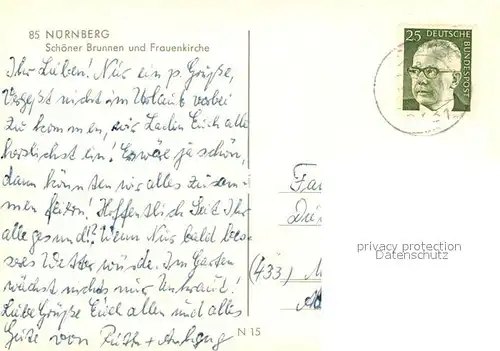 85 NÜRNBERG
Schöner Brunnen und Frauenkirche
Ihr Lieben! Nur ein p. Grüße,
Vergeßt nicht im Urlaub vorbei
zu kommen, wir laden Euch alle
herzlichst ein! Es wäre ja schön,
dann könnten wir alles zusam-
men feiern! Hoffentlich Seit Ihr
alle gesund!? Wenn Nur bald bes-
seres Wetter würde. Im Garten
wächst nichts nur Unkraut!
Liebe Grüße Euch allen und alles
Gute von Ruth +
N 15
25 DEUTSCHE BUNDESPOST
(433)
privacy protection
Datenschutz